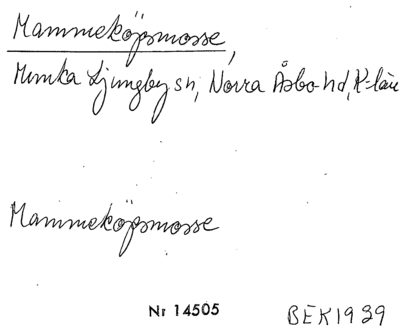 Mammeköpsmosse,
Munka Ljungby sn, Norra Åsbo hd, K-län
Mammeköpsmosse
Nr 14505
BEK 1939